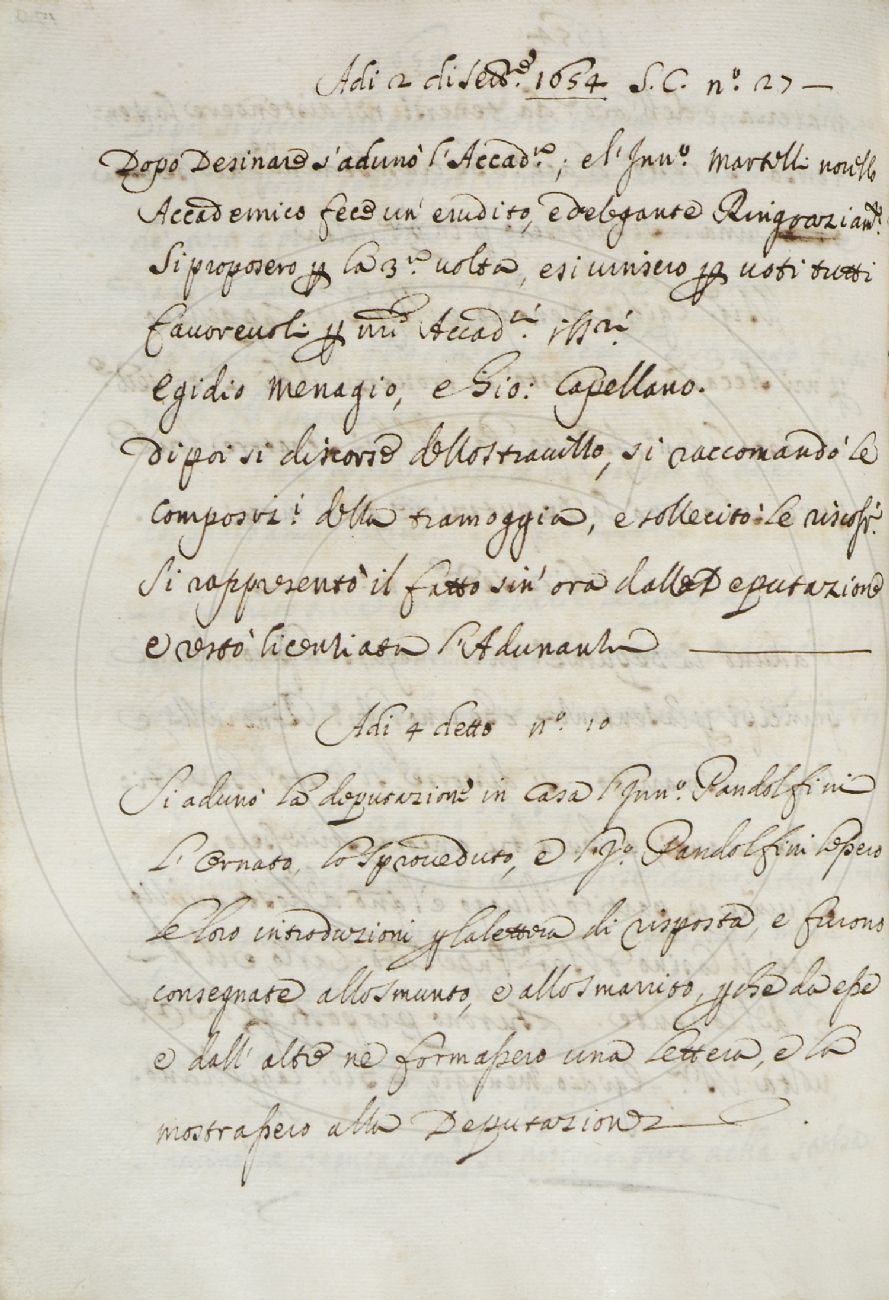 Adi 2 di Sett.re 1654 S. C. n.o 27 —
Dopo Desinare s'adunò l'Accad.a, e l'Inn.o Martelli novello
Accademico fece un' erudito, e delegante Ringraziam.to
Si proposero p la 3.a volta, e si vinsero p voti tutti
favorevoli p nri Accad.ci
Egidio Menagio, e Gio: Capellano.
Dipoi si discorse dello stravitto, si raccomandò le
composiz.i della tramoggia, e sollecitò le riscoss.i
Si rappresentò il fatto sin' ora dalla Deputazione
e restò licentiata l'Adunanza
Adi 4 detto n.o 10
Si adunò la deputazione in casa l'Inn.o Pandolfini
L'Ornato, lo Sproveduto, e l'I.o Pandolfini lessero
le loro introduzioni p la lettera di risposta, e furono
consegnate allo Smunto, e allo Smarrito, pche da esse
e dall' altre ne formassero una lettera, e la
mostrassero alla Deputazione